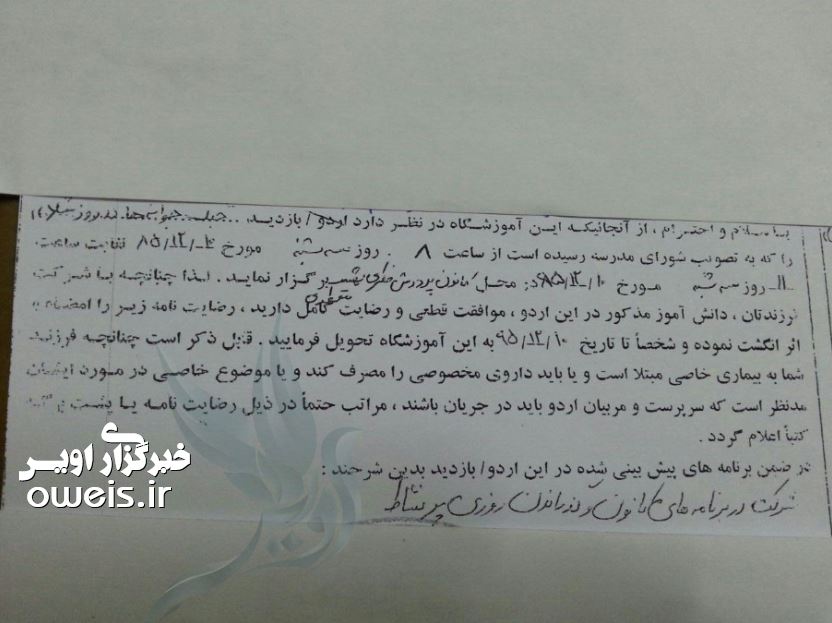 با سلام و احترام ، از آنجائیکه ایـن آموزشـگاه در نظـر دارد اردو / بازدیـد
را که به تصویب شورای مدرسه رسیده است از ساعت ۸ . روز سه شنبه مورخ لغایت ساعت
۱۱ روز سه شنبه مـورخ ۱۰ / ۱۲ / در محـل کانون پرورش فکری برگزار نمایـد . لـذا چنانچـه بـا شـرکت
فرزندتان ، دانش آموز مذکور در این اردو ، موافقت قطعی و رضایت کامل دارید ، رضایت نامه زیـر را امضـاء یـا
اثر انگشت نموده و شخصاً تا تاریخ ۹۵/۱۲/۱۰ به این آموزشگاه تحویل فرمایید . قابل ذکر است چنانچه فرزنـد
شما به بیماری خاصی مبتلا است و یا باید داروی مخصوصی را مصرف کند و یا موضوع خاصـی در مـورد ایشـان
مدنظر است که سرپرست و مربیان اردو باید در جریان باشند ، مراتب حتماً در ذیل رضایت نامـه یـا پشـت برگـه
کتباً اعلام گردد .
در ضمن برنامه های پیش بینی شده در این اردو/ بازدید بدین شرحند :
شرکت در برنامه های کانون و گذراندن روزی پر نشاط
خبرگزاری اویس
oweis.ir